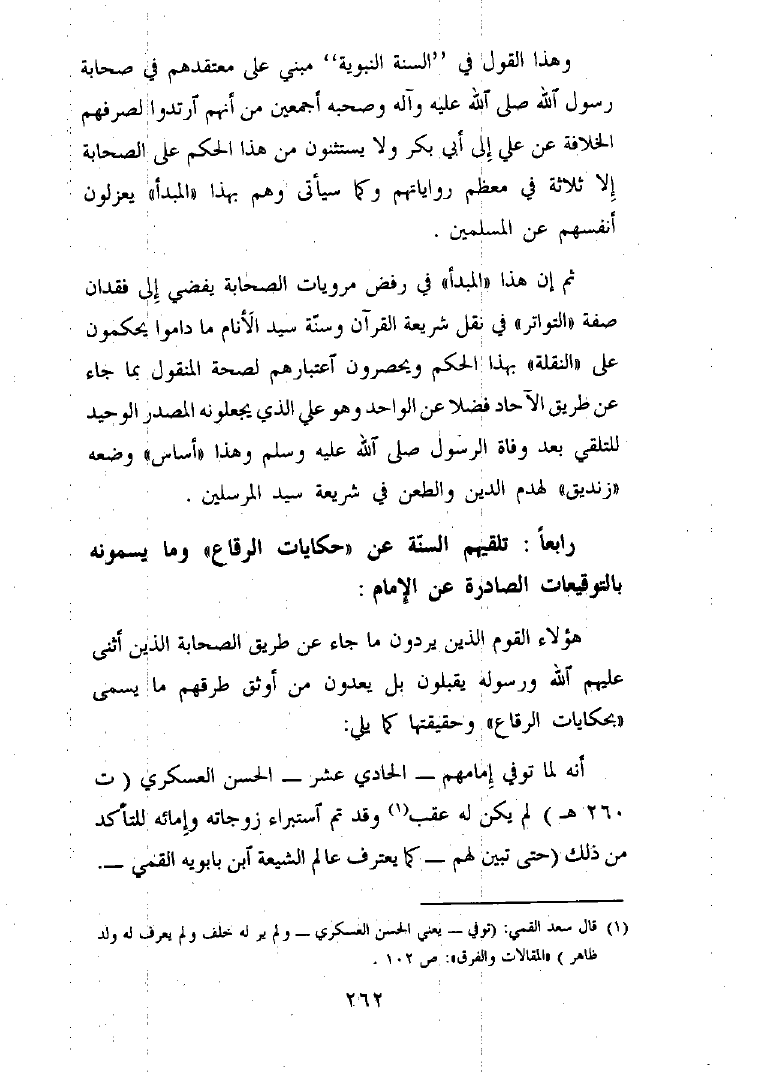 وهذا القول في ''السنة النبوية'' مبني على معتقدهم في صحابة
رسول ٱلله صلى ٱلله عليه وآله وصحبه أجمعين من أنهم ٱرتدوا لصرفهم
الخلافة عن علي إلى أبي بكر ولا يستثنون من هذا الحكم على الصحابة
إلا ثلاثة في معظم رواياتهم وكما سيأتى وهم بهذا «المبدأ» يعزلون
أنفسهم عن المسلمين .
ثم إن هذا «المبدأ» في رفض مرويات الصحابة يفضي إلى فقدان
صفة «التواتر» في نقل شريعة القرآن وسنّة سيد الأنام ما داموا يحكمون
على «النقلة» بهذا الحكم ويحصرون ٱعتبارهم لصحة المنقول بما جاء
عن طريق الآحاد فضلا عن الواحد وهو علي الذي يجعلونه المصدر الوحيد
للتلقي بعد وفاة الرسول صلى ٱلله عليه وسلم وهذا «أساس» وضعه
«زنديق» لهدم الدين والطعن في شريعة سيد المرسلين .
رابعاً : تلقيهم السنّة عن «حكايات الرقاع» وما يسمونه
بالتوقيعات الصادرة عن الإمام :
هؤلاء القوم الذين يردون ما جاء عن طريق الصحابة الذين أثنى
عليهم ٱلله ورسوله يقبلون بل يعدون من أوثق طرقهم ما يسمى
«بحكايات الرقاع» وحقيقتها كما يلي:
أنه لما توفي إمامهم ــ الحادي عشر ــ الحسن العسكري ( ت
٢٦٠ هـ ) لم يكن له عقب(١) وقد تم ٱستبراء زوجاته وإمائه للتأكد
من ذلك (حتى تبين لهم ــ كما يعترف عالم الشيعة ٱبن بابويه القمي ــ.
(١) قال سعد القمي: (توفي ــ يعني الحسن العسكري ــ ولم ير له خلف ولم يعرف له ولد
ظاهر ) «المقالات والفرق»: ص ١٠٢ .
٢٦٢